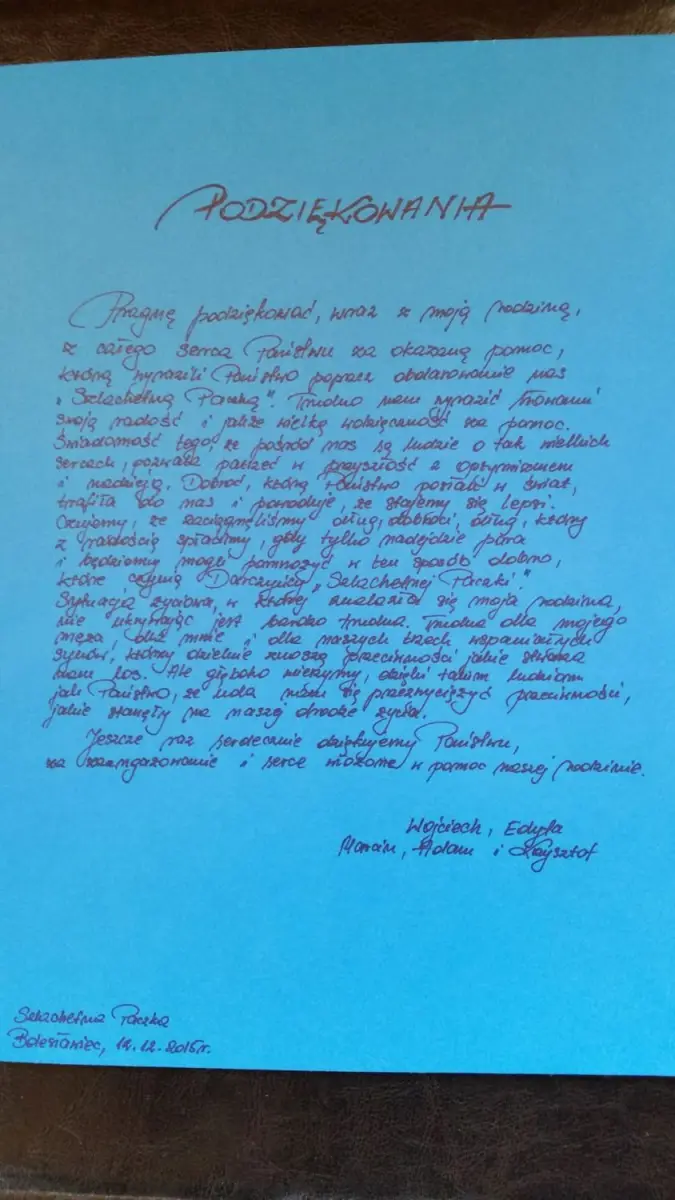 PODZIĘKOWANIA
Pragnę podziękować, wraz z moją rodziną,
z całego serca Państwu za okazaną pomoc,
którą wyrazili Państwo poprzez obdarowanie nas
"Szlachetną Paczką". Trudno nam wyrazić słowami
swoją radość i jakże wielką wdzięczność za pomoc.
Świadomość tego, że pośród nas są ludzie o tak wielkich
sercach, pozwala patrzeć w przyszłość z optymizmem
i nadzieją. Dobroć, którą Państwo posłali w świat,
trafiła do nas i powoduje, że stajemy się lepsi.
Czujemy, że zaciągnęliśmy dług dobroci, dług, który
z radością spłacimy, gdy tylko nadejdzie pora
i będziemy mogli pomnożyć w ten sposób dobro,
które czynią Darczyńcy "Szlachetnej Paczki".
Sytuacja życiowa, w której znalazła się moja rodzina,
nie ukrywając jest bardzo trudna. Trudna dla mojego
męża, dla mnie i dla naszych trzech wspaniałych
synów, którzy dzielnie znoszą przeciwności jakie stwarza
nam los. Ale głęboko wierzymy, dzięki takim ludziom
jak Państwo, że uda nam się przezwyciężyć przeciwności,
jakie stanęły na naszej drodze życia.
Jeszcze raz serdecznie dziękujemy Państwu,
za zaangażowanie i serce włożone w pomoc naszej rodzinie.
Wojciech, Edyta
Marcin, Adam i Krzysztof
Szlachetna Paczka
Bolesławiec, 12.12.2015r.